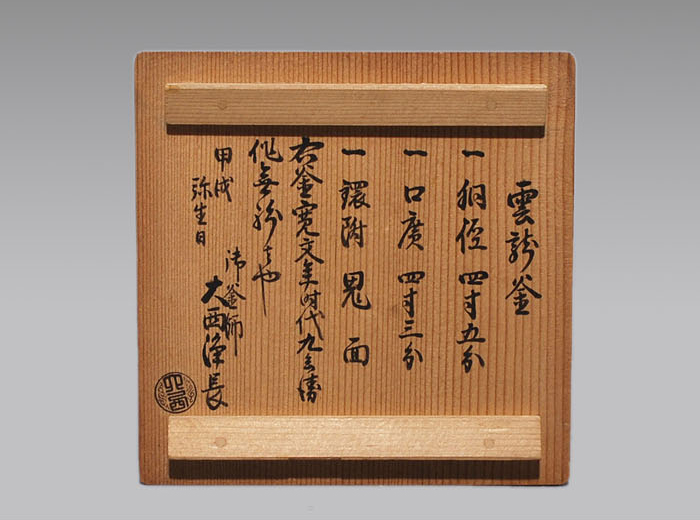 雲龍釜
一 胴径 四寸五分
一 口廣 四寸三分
一 鐶附 鬼面
右釜寛文年時代九兵衛
作無紛者也
甲戌
弥生日
御釜師
大西浄長
大西